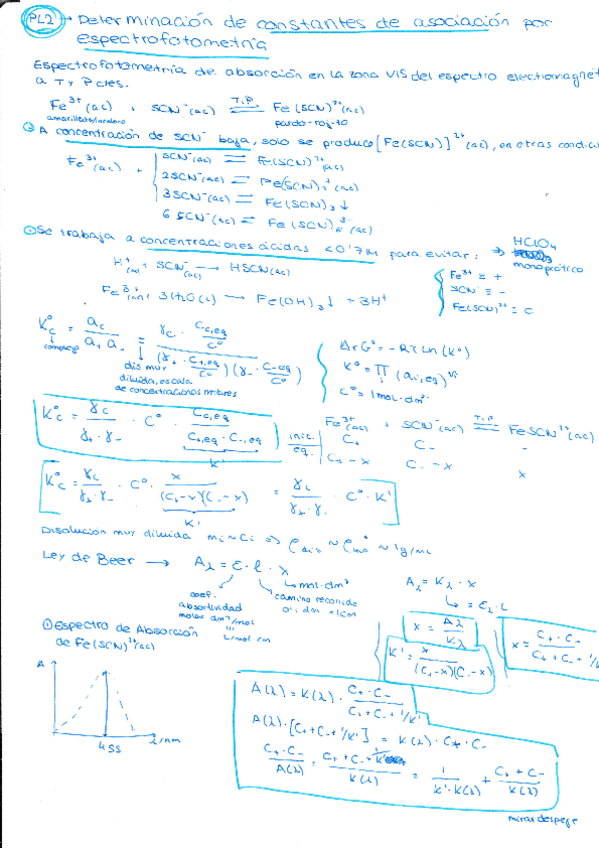 PL2 → Determinación de constantes de asociación por
espectrofotometría
Espectrofotometría de absorción en la zona VIS del espectro electromagnét
a T y P ctes.
Fe³⁺(ac) + SCN⁻(ac) ⇌ T,P Fe(SCN)²⁺(ac)
amarillo/incoloro pardo-rojizo
A concentración de SCN⁻ baja, solo se produce [Fe(SCN)]²⁺(ac), en otras condici
Fe³⁺(ac) + SCN⁻(ac) ⇌ Fe(SCN)²⁺(ac)
2SCN⁻(ac) ⇌ Fe(SCN)₂⁺(ac)
3SCN⁻(ac) ⇌ Fe(SCN)₃↓
6SCN⁻(ac) ⇌ Fe(SCN)₆³⁻(ac)
Se trabaja a concentraciones ácidas <0'7M para evitar: → HClO₄
monoprótico
H⁺(ac) + SCN⁻(ac) → HSCN(ac)
Fe³⁺(ac) + 3(H₂O(l) → Fe(OH)₃↓ + 3H⁺
Fe³⁺ = +
SCN⁻ = -
Fe(SCN)²⁺ = C
K°c = ac / a₊ a₋ = γc · Cc,eq/C° / (γ₊ · C₊,eq/C°)(γ₋ · C₋eq/C°)
complejo
dis muy
diluida, escala
de concentraciones molares
ΔrG° = -RT Ln (K°)
K° = ∏ (ai,eq)^νi
C° = 1mol·dm³
K°c = γc / γ₊ · γ₋ · C° · Cc,eq / C₊,eq · C₋,eq
K'
Fe³⁺(ac) + SCN⁻(ac) ⇌ T,P FeSCN²⁺(ac)
inic. C₊ C₋ -
eq. C₊-x C₋-x x
K°c = γc / γ₊·γ₋ · C° · x / (C₊-x)(C₋-x) = γc / γ₊·γ₋ · C° · K'
K'
Disolución muy diluida mi ~ Ci ⇒ ρdis ~ ρH₂O ~ 1g/mL
Ley de Beer → Aλ = ε · l · x
mol·dm³
camino recorrido
0'1 dm = 1cm
coef.
absortividad
molar dm³/mol
L/mol cm
Aλ = Kλ · x
= ελ · L
x = Aλ / Kλ
K' = x / (C₊-x)(C₋-x)
x = C₊ · C₋ / C₊ + C₋ + 1/K'
Espectro de Absorción
de Fe(SCN)²⁺(ac)
A
455
λ/nm
A(λ) = K(λ) · C₊ · C₋ / C₊ + C₋ + 1/K'
A(λ) · [C₊ + C₋ + 1/K'] = K(λ) · C₊ · C₋
C₊ · C₋ / A(λ) = C₊ + C₋ + 1/K' / K(λ) = 1 / K'·K(λ) + C₊ + C₋ / K(λ)
mirar despeje